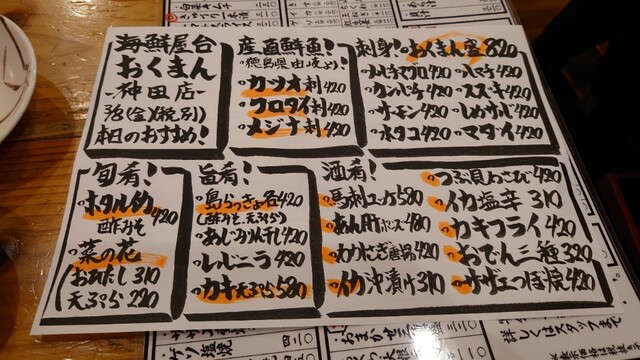 海鮮屋台
おくまん
-神田店-
3/8(金)(税別)
本日のおすすめ!
産直鮮魚!
・徳島県由岐より!
・カツオ刺420
・クロダイ刺420
・メジナ刺420
刺身!・おくまん盛820
・メバチマグロ420
・カンパチ420
・サーモン420
・水タコ420
・ハマチ420
・スズキ420
・しめサバ420
・マダイ420
旬肴!
・ホタルイカ
酢みそ420
・菜の花
おひたし310
天ぷら220
旨肴!
・島らっきょ各420
(酢みそ、天ぷら)
・あじみりん干し420
・レバニラ420
・カキ天ぷら580
酒肴!
・馬刺ユッケ580
・あん肝ポン酢480
・わかさぎ唐揚420
・イカ沖漬け310
・つぶ貝わさび420
・イカ塩辛310
・カキフライ420
・おでん三種320
・サザエつぼ焼420